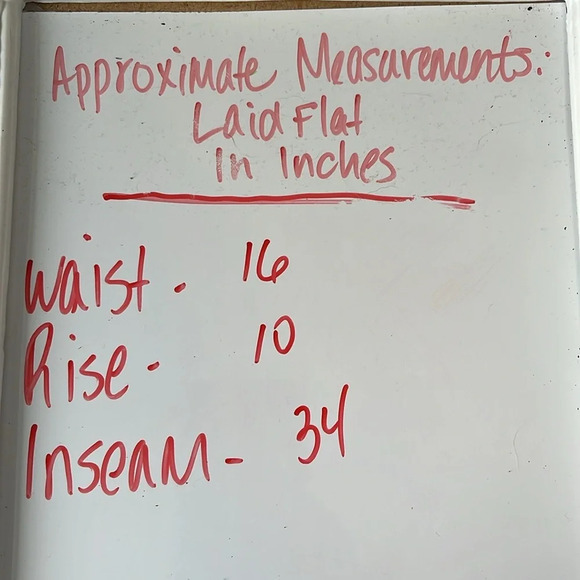 Approximate Measurements:
Laid Flat
In Inches
Waist - 16
Rise - 10
Inseam - 34